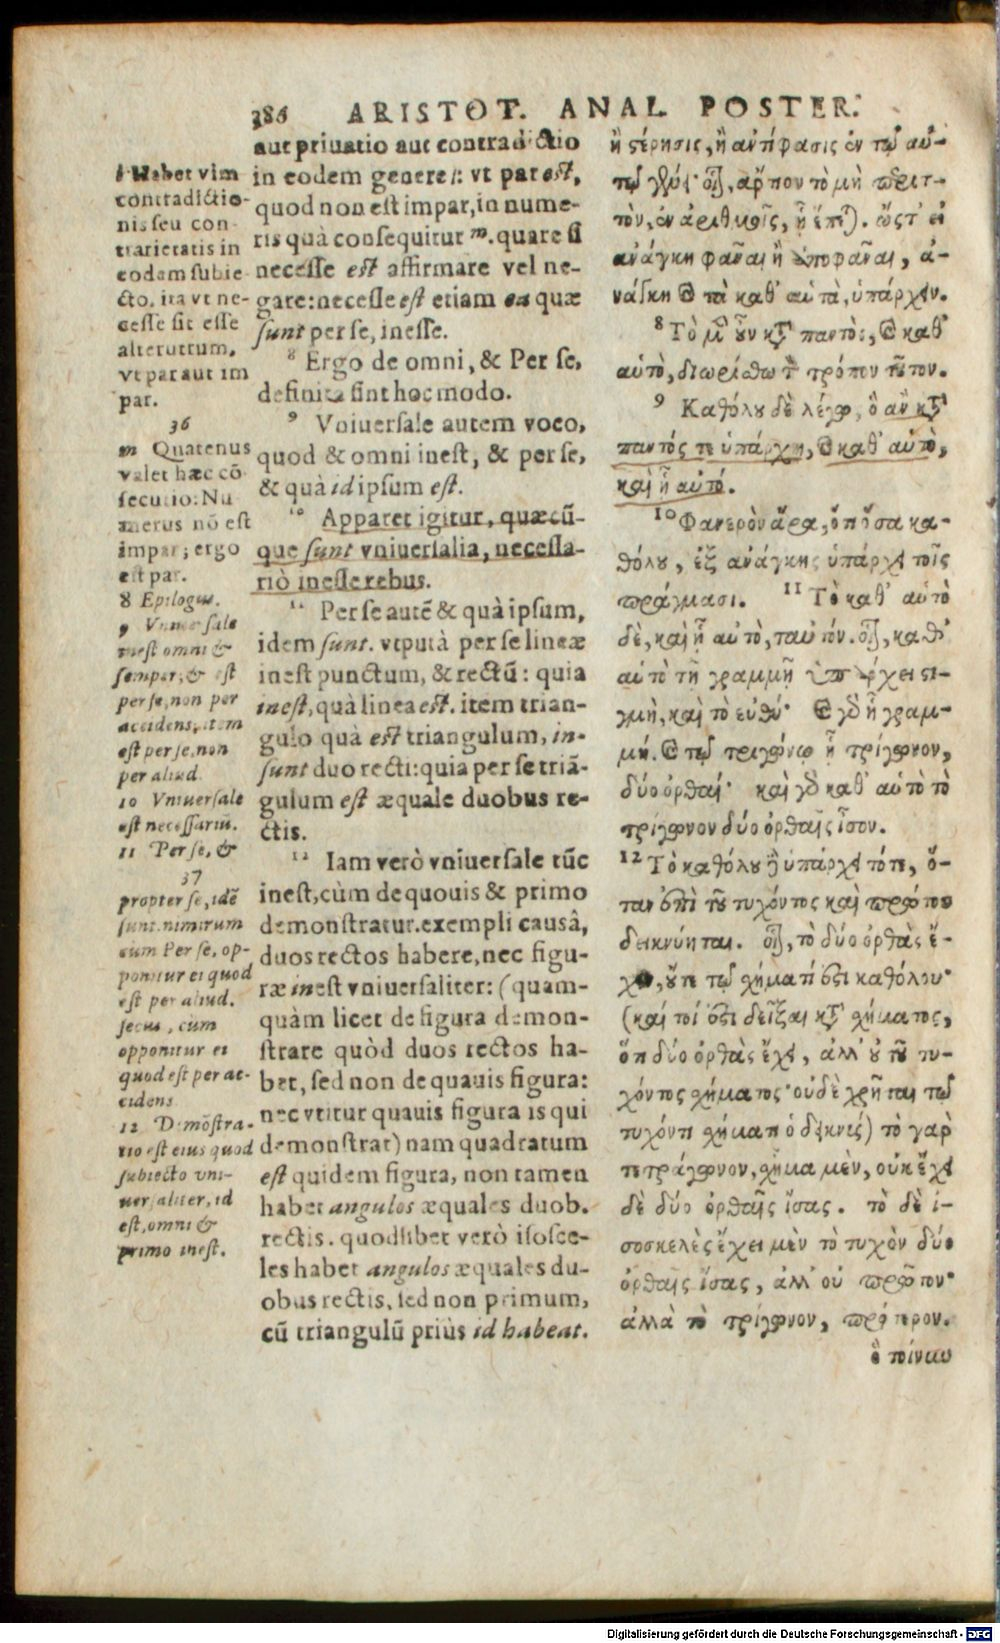 386 ARISTOT. ANAL. POSTER.
l Habet vim
contradictio-
nis seu con
trarietatis in
eodem subie
cto, ita vt ne-
cesse sit esse
alterutrum,
vt par aut im
par.
36
m Quatenus
valet hæc cō
secutio: Nu
merus nō est
impar; ergo
est par.
8 Epilogus.
9 Vniuersale
inest omni &
semper, & est
per se, non per
accidens, item
est per se, non
per aliud.
10 Vniuersale
est necessariū.
11 Per se, &
37
propter se, idē
sunt. nimirum
cum Per se, op-
ponitur ei quod
est per aliud.
secus, cum
opponitur ei
quod est per ac-
cidens
12 Demōstra-
tio est eius quod
subiecto vni-
uersaliter, id
est, omni &
primo inest.
aut priuatio aut contradictio
in eodem genere l: vt par est,
quod non est impar, in nume-
ris quà consequitur m. quare si
necesse est affirmare vel ne-
gare: necesse est etiam ea quæ
sunt per se, inesse.
8 Ergo de omni, & Per se,
definita sint hoc modo.
9 Vniuersale autem voco,
quod & omni inest, & per se,
& quà id ipsum est.
10 Apparet igitur, quæcū-
que sunt vniuersalia, necessa-
riò inesse rebus.
11 Per se autē & quà ipsum,
idem sunt. vtputà per se lineæ
inest punctum, & rectū: quia
inest, quà linea est. item trian-
gulo quà est triangulum, in-
sunt duo recti: quia per se triā-
gulum est æquale duobus re-
ctis.
12 Iam verò vniuersale tūc
inest, cùm de quouis & primo
demonstratur. exempli causâ,
duos rectos habere, nec figu-
ræ inest vniuersaliter: (quam-
quàm licet de figura demon-
strare quòd duos rectos ha-
bet, sed non de quauis figura:
nec vtitur quauis figura is qui
demonstrat) nam quadratum
est quidem figura, non tamen
habet angulos æquales duob.
rectis. quodlibet verò isosce-
les habet angulos æquales du-
obus rectis, sed non primum,
cū triangulū priùs id habeat.
ἢ στέρησις, ἢ ἀντίφασις ἐν τῷ αὐ-
τῷ γένει· οἷον, ἄρτιον τὸ μὴ περιτ-
τὸν, ἐν ἀριθμοῖς, ᾗ ἕπεται). ὥστ' εἰ
ἀνάγκη φάναι ἢ ἀποφάναι, ἀ-
νάγκη καὶ τὰ καθ' αὑτὰ, ὑπάρχειν.
8 Τὸ μὲν οὖν κατὰ παντὸς, καὶ καθ'
αὑτὸ, διωρίσθω τὸν τρόπον τοῦτον.
9 Καθόλου δὲ λέγω, ὃ ἂν κατὰ
παντός τε ὑπάρχῃ, καὶ καθ' αὑτὸ,
καὶ ᾗ αὐτό.
10 Φανερὸν ἄρα, ὅτι ὅσα κα-
θόλου, ἐξ ἀνάγκης ὑπάρχει τοῖς
πράγμασι. 11 Τὸ καθ' αὑτὸ
δὲ, καὶ ᾗ αὐτὸ, ταυτόν. οἷον, καθ'
αὑτὸ τῇ γραμμῇ ὑπάρχει στι-
γμὴ, καὶ τὸ εὐθύ· καὶ γὰρ ᾗ γραμ-
μή. καὶ τῷ τριγώνῳ ᾗ τρίγωνον,
δύο ὀρθαί· καὶ γὰρ καθ' αὑτὸ τὸ
τρίγωνον δύο ὀρθαῖς ἴσον.
12 Τὸ καθόλου δὲ ὑπάρχει τότε, ὅ-
ταν ἐπὶ τοῦ τυχόντος καὶ πρώτου
δεικνύηται. οἷον, τὸ δύο ὀρθὰς ἔ-
χειν, οὔτε τῷ σχήματί ἐστι καθόλου·
(καί τοι ἔστι δεῖξαι κατὰ σχήματος,
ὅτι δύο ὀρθὰς ἔχει, ἀλλ' οὐ τοῦ τυ-
χόντος σχήματος· οὐδὲ χρῆται τῷ
τυχόντι σχήματι ὁ δεικνύς) τὸ γὰρ
τετράγωνον, σχῆμα μὲν, οὐκ ἔχει
δὲ δύο ὀρθαῖς ἴσας. τὸ δὲ ἰ-
σοσκελὲς ἔχει μὲν τὸ τυχὸν δύο
ὀρθαῖς ἴσας, ἀλλ' οὐ πρῶτον·
ἀλλὰ τὸ τρίγωνον, πρότερον.
ὃ τοίνυν
Digitalisierung gefördert durch die Deutsche Forschungsgemeinschaft - DFG